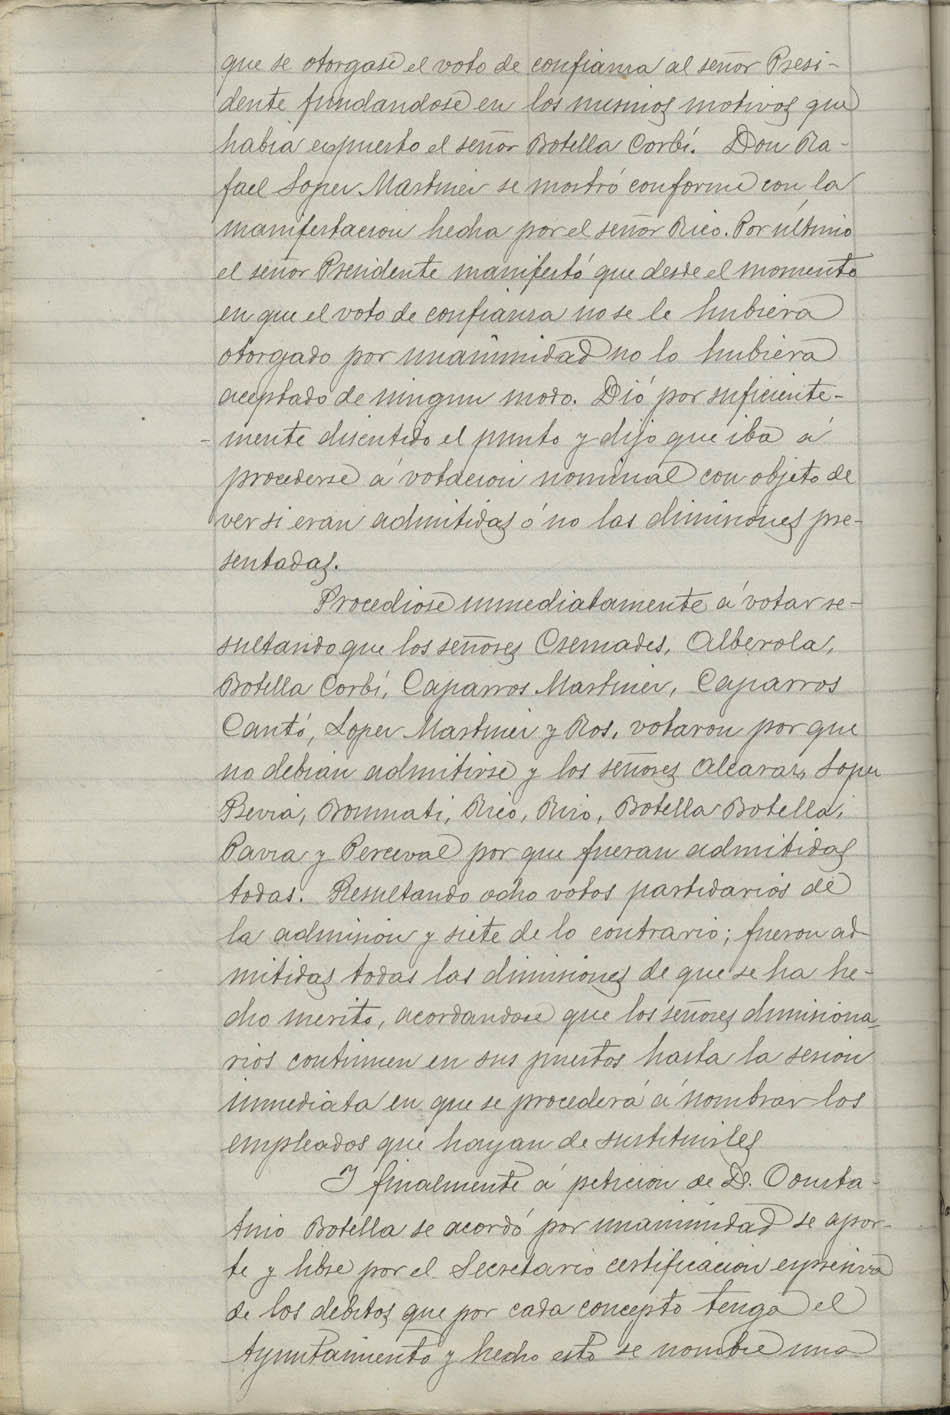 que se otorgase el voto de confianza al señor Presi-
dente fundandose en los mismos motivos que
habia expuesto el señor Botella Corbí. Don Ra-
fael Lopez Martinez se mostró conforme con la
manifestacion hecha por el señor Rico. Por último
el señor Presidente manifestó que desde el momento
en que el voto de confianza no se le hubiera
otorgado por unanimidad no lo hubiera
aceptado de ningun modo. Dió por suficiente-
mente discutido el punto y dijo que iba á
procederse á votacion nominal con objeto de
ver si eran admitidas ó no las dimisiones pre-
sentadas.
Procediose inmediatamente á votar re-
sultando que los señores Cremades, Alberola,
Botella Corbí, Caparros Martinez, Caparros
Cantó, Lopez Martinez y Ros, votaron por que
no debian admitirse y los señores Alcaraz, Lopez
Bevia, Bonmati, Rico, Rizo, Botella Botella,
Pavia y Perceval por que fueran admitidas
todas. Resultando ocho votos partidarios de
la admision y siete de lo contrario; fueron ad-
mitidas todas las dimisiones de que se ha he-
cho merito, acordandose que los señores dimisiona-
rios continuen en sus puestos hasta la sesion
inmediata en que se procederá á nombrar los
empleados que hayan de sustituirles
I finalmente á peticion de D. Consta-
tino Botella se acordó por unanimidad se apor-
te y libre por el Secretario certificacion expresiva
de los debitos que por cada concepto tenga el
Ayuntamiento y hecho esto se nombre una